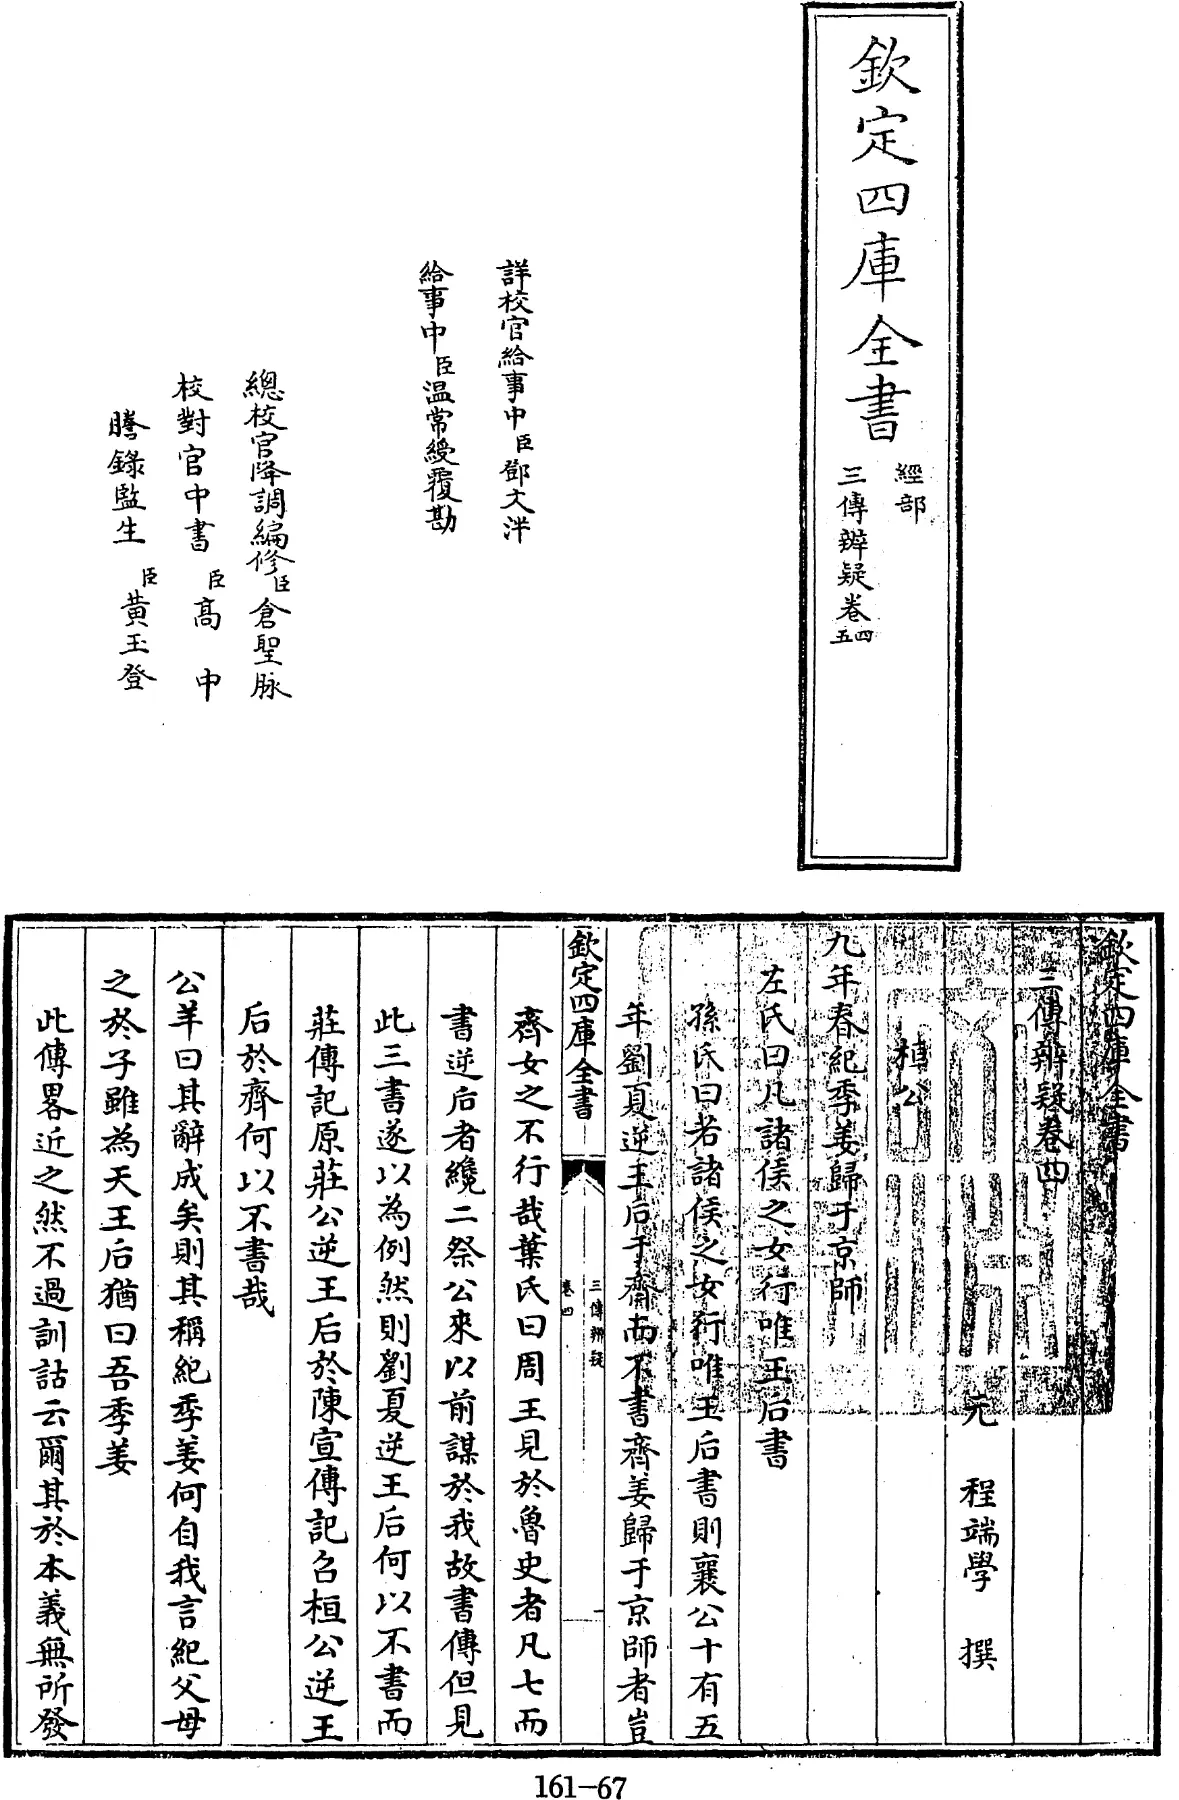 欽定四庫全書
經部
三傳辨疑卷四五
詳校官給事中臣鄧文泮
給事中臣温常綬覆勘
總校官降調編修臣倉聖脉
校對官中書臣高中
騰錄監生臣黄玉登
欽定四庫全書
三傳辨疑卷四
元 程端學 撰
桓公
九年春紀季姜歸于京師
左氏曰凡諸侯之女行唯王后書
孫氏曰若諸侯之女行唯王后書則襄公十有五
年劉夏逆王后于齊而不書齊姜歸于京師者豈
欽定四庫全書
三傳辨疑
卷四
齊女之不行哉葉氏曰周王見於魯史者凡七而
書逆后者纔二祭公來以前謀於我故書傳但見
此三書遂以為例然則劉夏逆王后何以不書而
莊傳記原莊公逆王后於陳宣傳記召桓公逆王
后於齊何以不書哉
公羊曰其辭成矣則其稱紀季姜何自我言紀父母
之於子雖為天王后猶曰吾季姜
此傳畧近之然不過訓詁云爾其於本義無所發
161-67